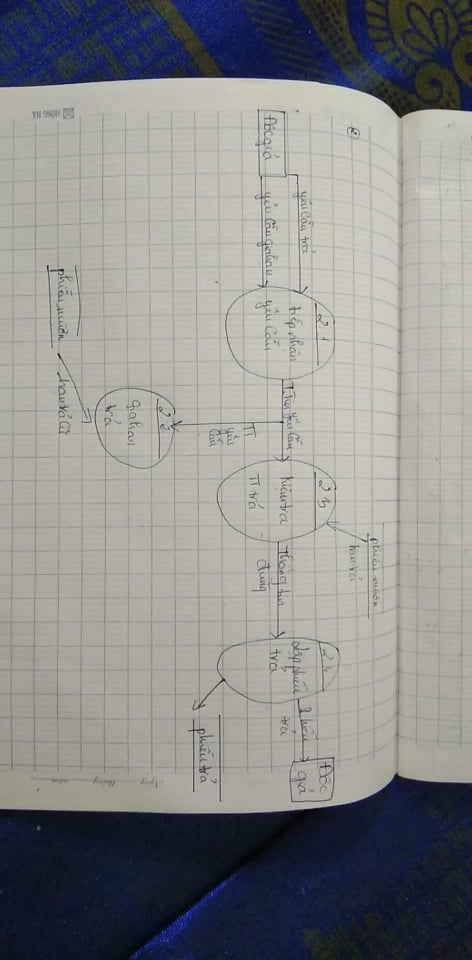 2
Độc giả
yêu cầu trả
yêu cầu gia hạn
2.1
tiếp nhận
yêu cầu
TT yêu cầu
TT
yêu
cầu
2.2
gia hạn
trả
phiếu mượn
hạn trả cũ
2.3
kiểm tra
TT trả
phiếu mượn
hạn trả
thông tin
đúng
2.4
lập phiếu
trả
phiếu
trả
Độc
giả
phiếu trả
HỒNG HÀ
Ngày tháng năm